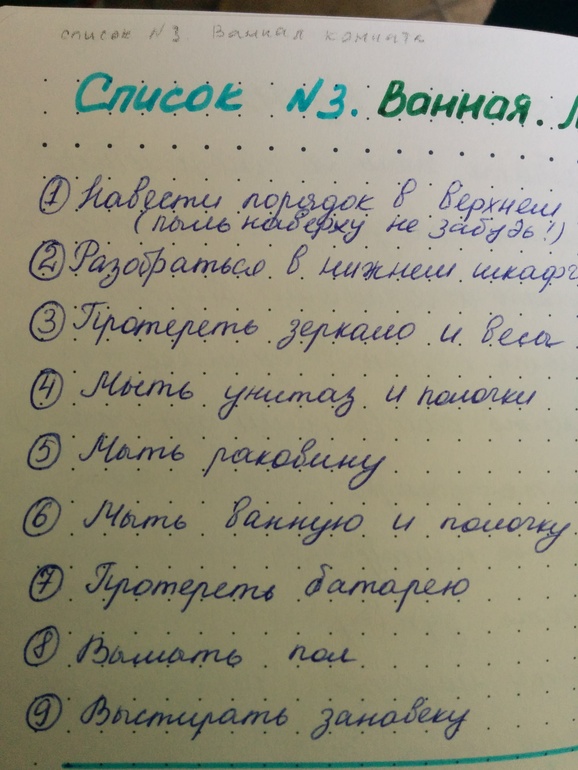 список №3. Ванная комната
Список №3. Ванная.
① Навести порядок в верхнем
(пыль наверху не забудь!)
② Разобраться в нижнем шкафч
③ Протереть зеркало и весы
④ Мыть унитаз и полочки
⑤ Мыть раковину
⑥ Мыть ванную и полочку
⑦ Протереть батарею
⑧ Вымыть пол
⑨ Выстирать занавеку